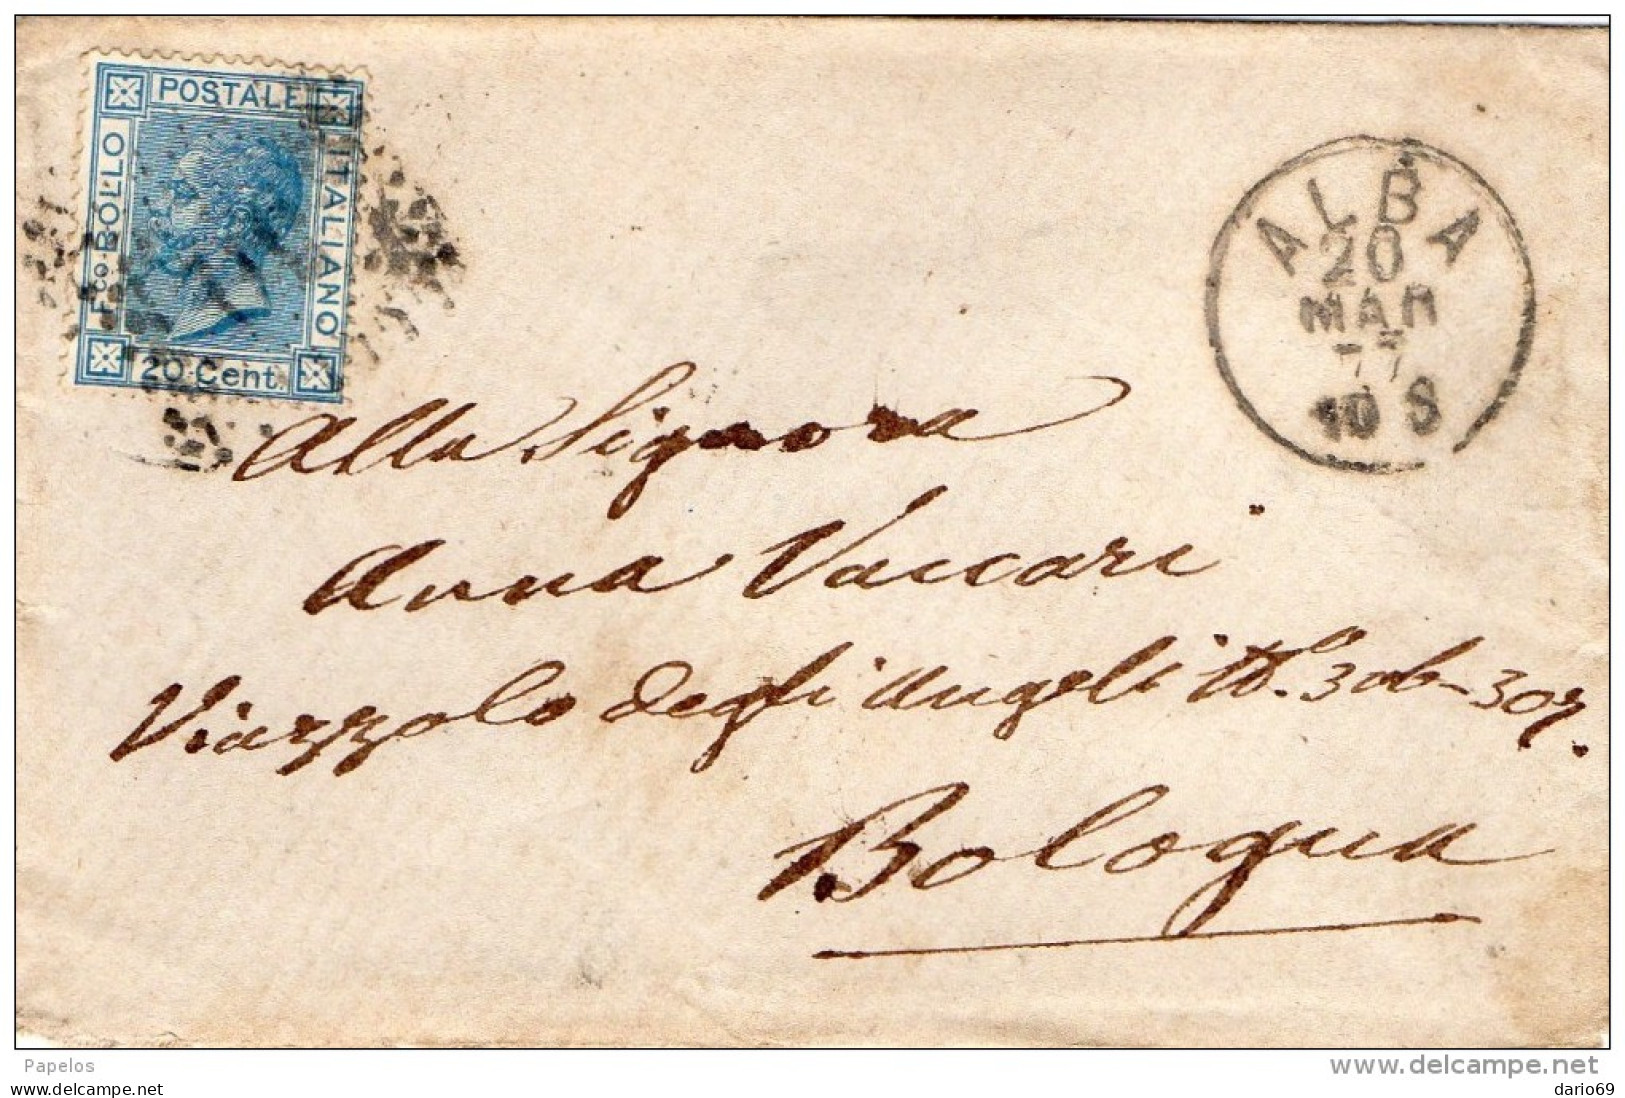 POSTALE
ITALIANO
Fco BOLLO
20 Cent.
ALBA
20
MAR
77
10 S
Alla Signora
Anna Vaccari
Viazzolo degli Angeli No. 306-307.
Bologna
Papelos
www.delcampe.net
dario69